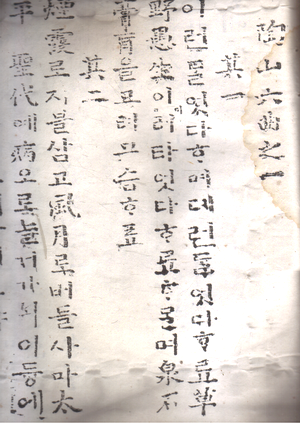 陶山六曲之一
其一
이런ᄃᆞᆯ엇다ᄒᆞ며뎌런ᄃᆞᆯ엇다ᄒᆞ료草
野愚生이이러타엇다ᄒᆞ료ᄒᆞᄆᆞᆯ며泉石
膏肓을고텨므슴ᄒᆞ료
其二
煙霞로지블삼고風月로버들사마太
平聖代예病으로늘거가뇌이듕에